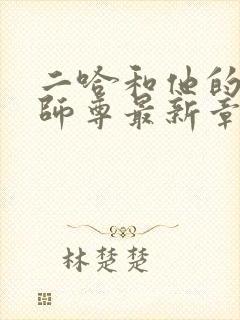 二哈和他的
师尊最新章
林楚楚